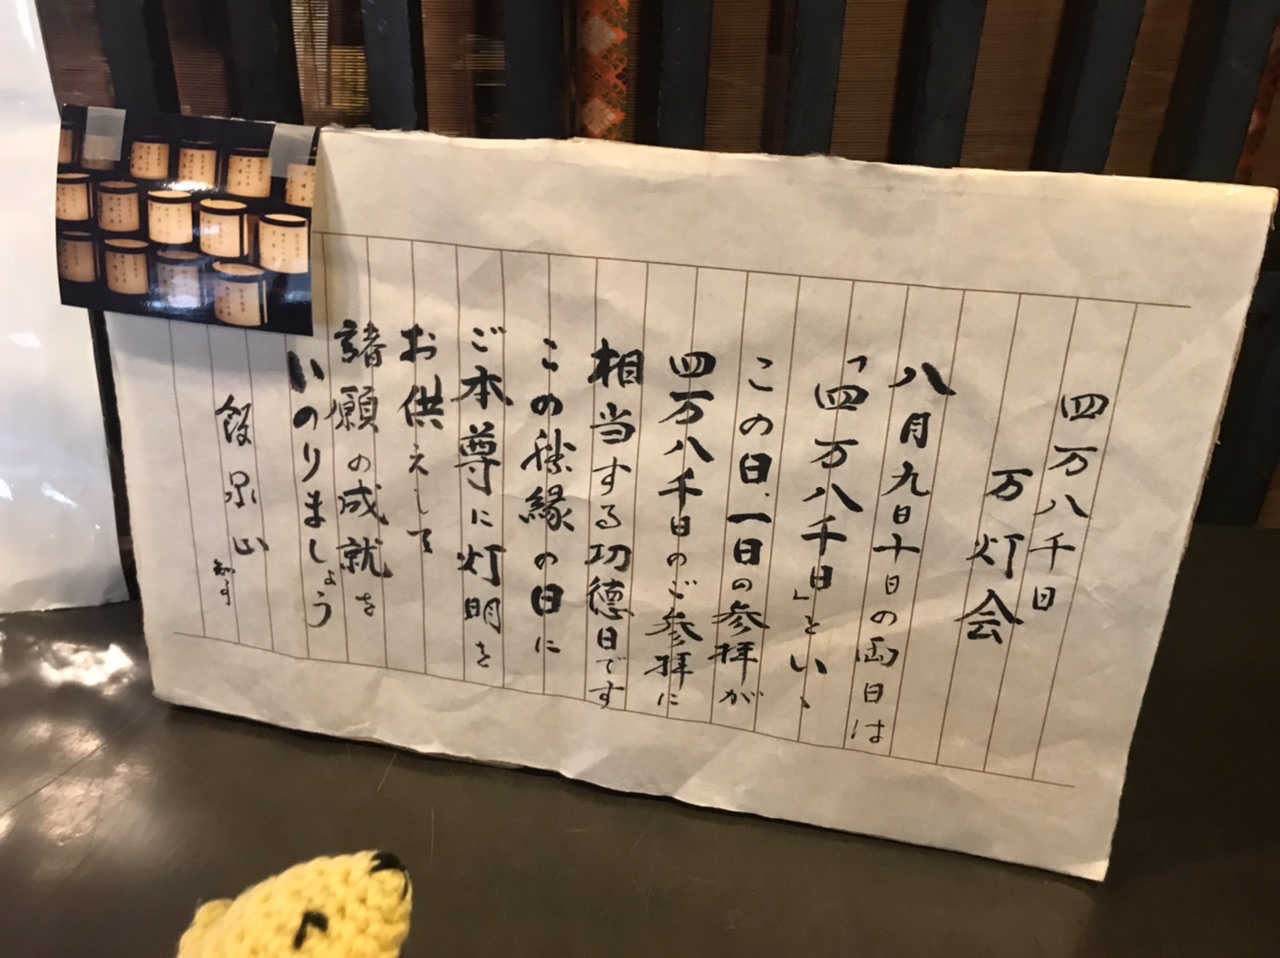 四万八千日
万灯会
八月九日十日の両日は
「四万八千日」といい、
この日、一日の参拝が
四万八千日のご参拝に
相当する功徳日です
この勝縁の日に
ご本尊に灯明を
お供えして
諸願の成就を
いのりましょう
飯泉山